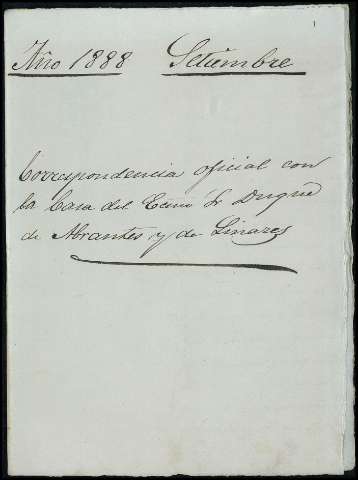 1
Año 1888 Setiembre
Correspondencia oficial con
la Casa del Excmo Sr Duque
de Abrantes y de Linares